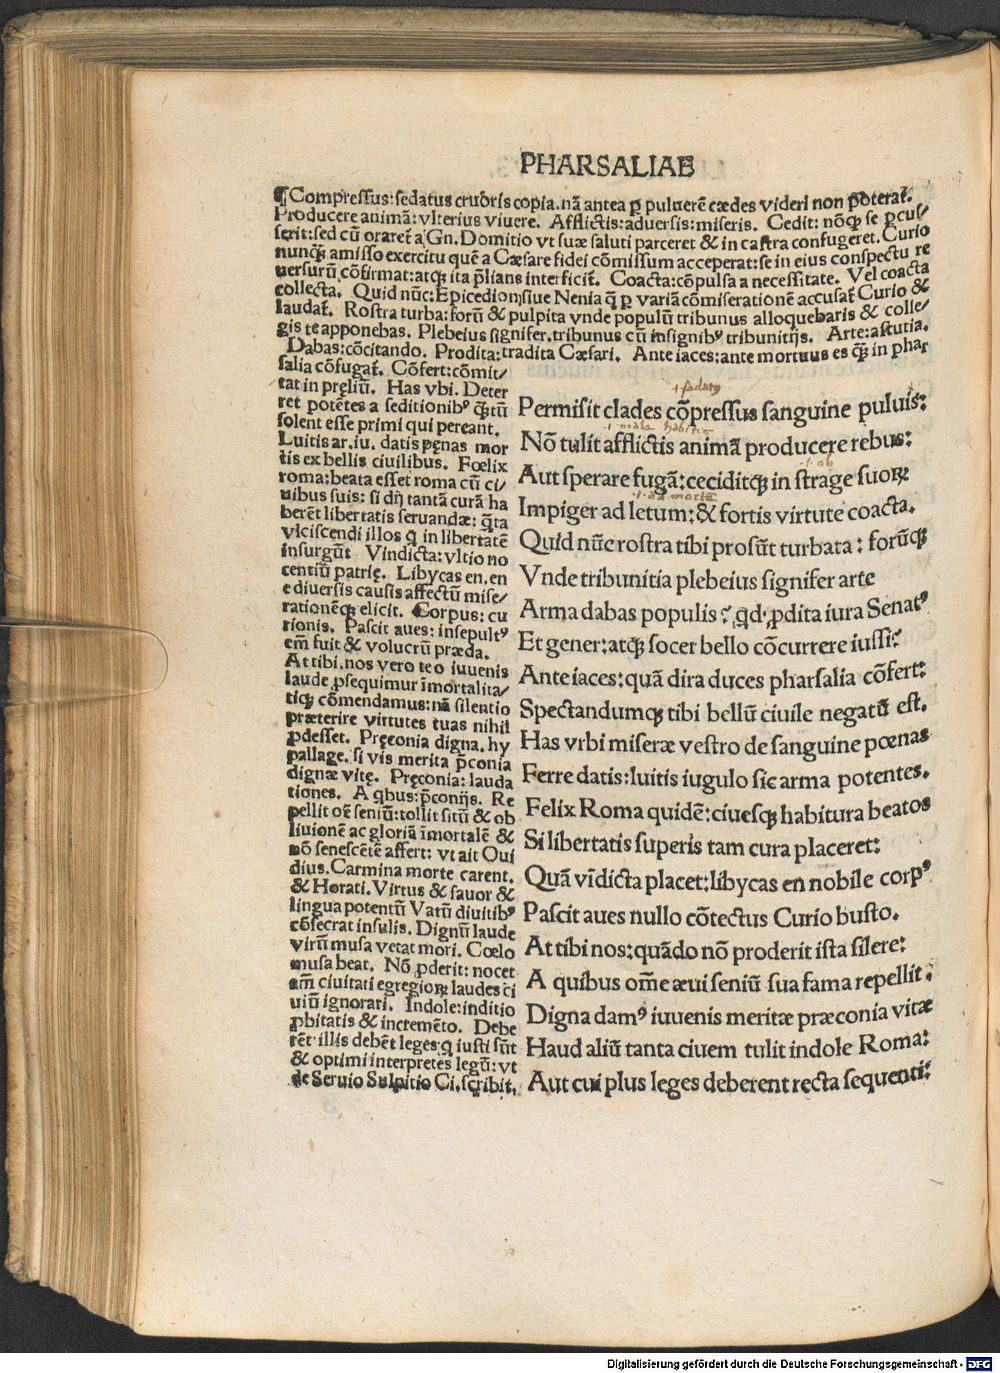 PHARSALIAE
¶Compressus:sedatus cruoris copia.nã antea ꝑ puluerẽ cædes videri non poterat̃.
Producere animã:vlterius viuere. Afflictis:aduersis:miseris. Cedit: nõqꝫ se ꝑcus/
serit:sed cũ oraret̃ a Gn.Domitio vt suæ saluti parceret & in castra confugeret. Curio
nunqꝫ̃ amisso exercitu quẽ a Cæsare fidei cõmissum acceperat:se in eius conspectu re
uersurũ cõfirmat:atqꝫ ita p̃lians interficit̃. Coacta:cõpulsa a necessitate. Vel coacta
collecta. Quid nũc:Epicedion,siue Nenia q̃ ꝑ variã cõmiserationẽ accusat̃ Curio &
laudat̃. Rostra turba:forũ & pulpita vnde populũ tribunus alloquebaris & colle/
gis te apponebas. Plebeius signifer.tribunus cũ insignibꝰ tribunitijs. Arte:astutia.
Dabas:cõcitando. Prodita:tradita Cæsari. Ante iaces:ante mortuus es qꝫ̃ in phar
salia cõfugat̃. Cõfert:cõmit/
tat in pręliũ. Has vbi. Deter
ret potẽtes a seditionibꝰ qꝫ̃tũ
solent esse primi qui pereant.
Luitis ar.iu. datis pęnas mor
tis ex bellis ciuilibus. Fœlix
roma:beata esset roma cũ ci/
uibus suis: si dij tantã curã ha
berẽt libertatis seruandæ: q̃ta
vlciscendi illos q̃ in libertatẽ
insurgũt Vindicta:vltio no
centiũ patrię. Libycas en.en
e diuersis causis affectũ mise/
rationẽqꝫ elicit. Corpus: cu
rionis. Pascit aues: insepultꝰ
em̃ fuit & volucrũ præda.
At tibi.nos vero te o iuuenis
laude ꝓsequimur ĩmortalita/
tiqꝫ cõmendamus:nã silentio
præterire virtutes tuas nihil
ꝓdesset. Pręconia digna.hy
pallage. si vis merita p̃conia
dignæ vitę. Pręconia: lauda
tiones. A qbus:p̃conijs. Re
pellit oẽ seniũ:tollit sitũ & ob
liuionẽ ac gloriã ĩmortalẽ &
nõ senescẽtẽ affert: vt ait Oui
dius.Carmina morte carent.
& Horati.Virtus & fauor &
lingua potentũ Vatũ diuitibꝰ
cõsecrat insulis. Dignũ laude
virũ musa vetat mori. Cœlo
musa beat. Nõ ꝓderit: nocet
em̃ ciuitati egregioꝝ laudes ci
uiũ ignorari. Indole:inditio
ꝓbitatis & incremẽto. Debe
rẽt illis debẽt leges q̃ iusti sũt
& optimi interpretes legũ: vt
de Seruio Sulpitio Ci.scribit.
.i. sedatꝰ
Permisit clades cõpressus sanguine puluis:
Nõ tulit afflictis animã producere rebus:
.i. ob
Aut sperare fugã:ceciditqꝫ in strage suoꝝ
.i. ad mortẽ
Impiger ad letum:& fortis virtute coacta.
Quid nũc rostra tibi prosũt turbata: forũqꝫ
Vnde tribunitia plebeius signifer arte
Arma dabas populis? qd ꝓdita iura Senatꝰ
Et gener:atqꝫ socer bello cõcurrere iussi?
Ante iaces:quã dira duces pharsalia cõfert:
Spectandumqꝫ tibi bellũ ciuile negatũ est.
Has vrbi miseræ vestro de sanguine pœnas
Ferre datis:luitis iugulo sic arma potentes.
Felix Roma quidẽ:ciuesqꝫ habitura beatos
Si libertatis superis tam cura placeret:
Quã vĩdicta placet:libycas en nobile corpꝰ
Pascit aues nullo cõtectus Curio busto.
At tibi nos:quãdo nõ proderit ista silere:
A quibus om̃e æui seniũ sua fama repellit.
Digna damꝰ iuuenis meritæ præconia vitæ
Haud aliũ tanta ciuem tulit indole Roma:
Aut cui plus leges deberent recta sequenti:
Digitalisierung gefördert durch die Deutsche Forschungsgemeinschaft - DFG